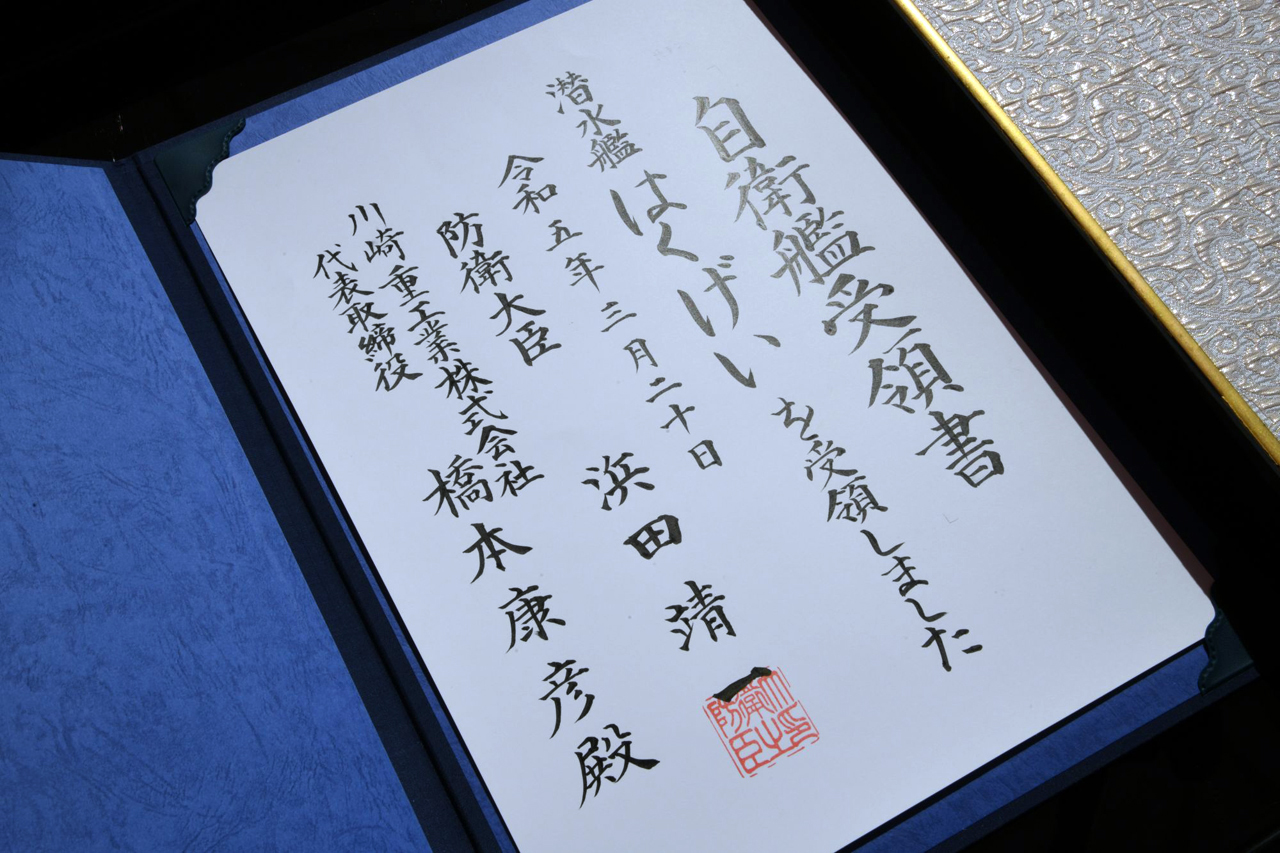 自衛艦受領書
潜水艦はくげいを受領しました
令和五年三月二十日
防衛大臣 浜田靖一
川崎重工業株式会社
代表取締役 橋本康彦殿
防衛大臣之印